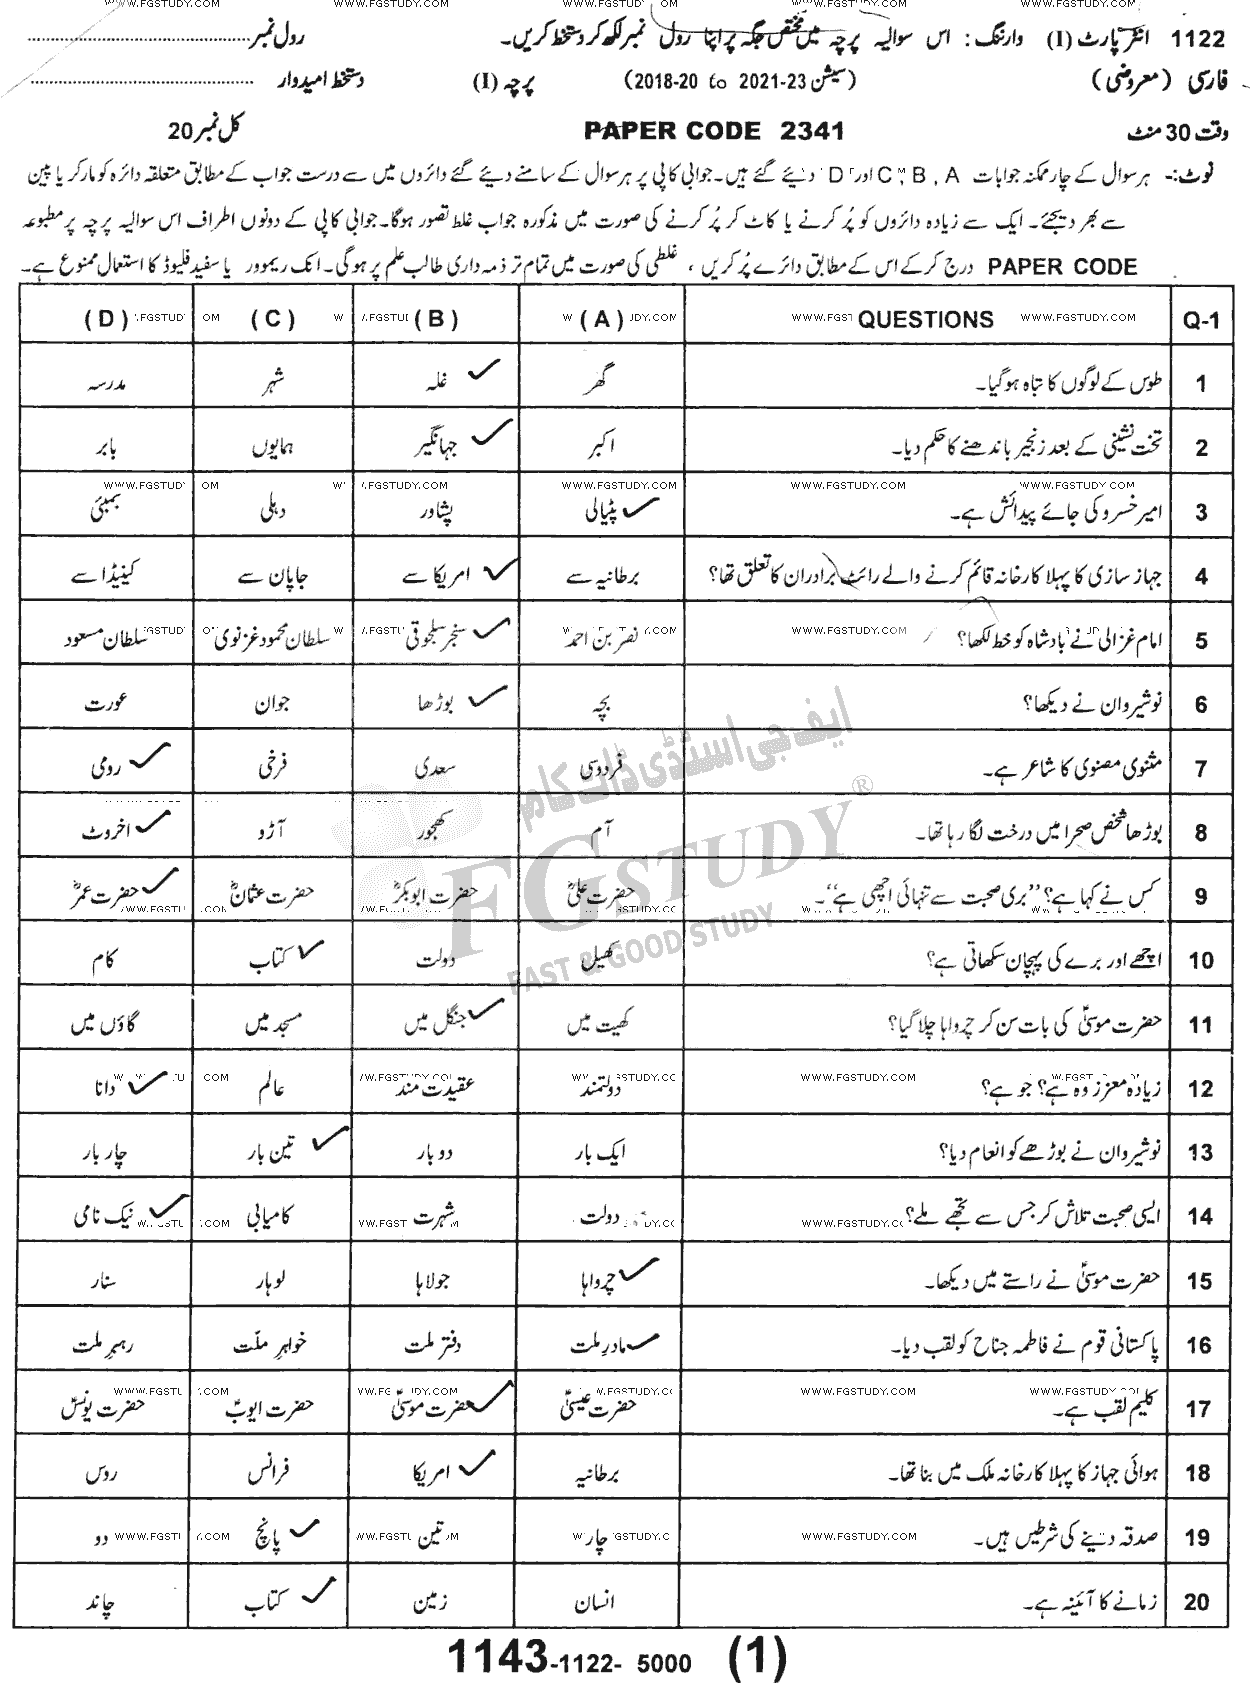 WWW.FGSTUDY.COM WWW.FGSTUDY.COM WWW.FGSTUDY.COM
1122 انٹر پارٹ (I) وارننگ: اس سوالیہ پرچہ میں مختص جگہ پر اپنا رول نمبر لکھ کر دستخط کریں۔ رول نمبر
فارسی (معروضی) (سیشن 2018-20 to 2021-23) پرچہ (I) دستخط امیدوار
وقت 30 منٹ PAPER CODE 2341 کل نمبر 20
نوٹ:۔ ہر سوال کے چار ممکنہ جوابات A ، B ، C اور D دیئے گئے ہیں۔ جوابی کاپی پر ہر سوال کے سامنے دیئے گئے دائروں میں سے درست جواب کے مطابق متعلقہ دائرہ کو مارکر یا پین
سے بھر دیجئے۔ ایک سے زیادہ دائروں کو پُر کرنے یا کاٹ کر پُر کرنے کی صورت میں مذکورہ جواب غلط تصور ہوگا۔ جوابی کاپی کے دونوں اطراف اس سوالیہ پرچہ پر مطبوعہ
PAPER CODE درج کر کے اس کے مطابق دائرے پُر کریں ، غلطی کی صورت میں تمام تر ذمہ داری طالب علم پر ہوگی۔ انک ریموور یا سفید فلیوڈ کا استعمال ممنوع ہے۔
Q-1 QUESTIONS (A) (B) (C) (D)
1 طوس کے لوگوں کا تباہ ہوگیا۔ گھر غلہ شہر مدرسہ
2 تخت نشینی کے بعد زنجیر باندھنے کا حکم دیا۔ اکبر جہانگیر ہمایوں بابر
3 امیر خسرو کی جائے پیدائش ہے۔ پٹیالی پشاور دہلی بمبئی
4 جہاز سازی کا پہلا کارخانہ قائم کرنے والے رائٹ برادران کا تعلق تھا؟ برطانیہ سے امریکا سے جاپان سے کینیڈا سے
5 امام غزالی نے بادشاہ کو خط لکھا؟ نصر بن احمد سنجر سلجوقی سلطان محمود غزنوی سلطان مسعود
6 نوشیروان نے دیکھا؟ بچہ بوڑھا جوان عورت
7 مثنوی معنوی کا شاعر ہے۔ فردوسی سعدی فرخی رومی
8 بوڑھا شخص صحرا میں درخت لگا رہا تھا۔ آم کھجور آڑو اخروٹ
9 کس نے کہا ہے؟ ”بری صحبت سے تنہائی اچھی ہے“۔ حضرت علیؓ حضرت ابوبکرؓ حضرت عثمانؓ حضرت عمرؓ
10 اچھے اور برے کی پہچان سکھاتی ہے؟ کھیل دولت کتاب کام
11 حضرت موسیٰؑ کی بات سن کر چرواہا چلا گیا؟ کھیت میں جنگل میں مسجد میں گاؤں میں
12 زیادہ معزز وہ ہے؟ جو ہے؟ دولتمند عقیدت مند عالم دانا
13 نوشیروان نے بوڑھے کو انعام دیا؟ ایک بار دو بار تین بار چار بار
14 ایسی صحبت تلاش کر جس سے تجھے ملے؟ دولت شہرت کامیابی نیک نامی
15 حضرت موسیٰؑ نے راستے میں دیکھا۔ چرواہا جولاہا لوہار سنار
16 پاکستانی قوم نے فاطمہ جناح کو لقب دیا۔ مادرِ ملت دفتر ملت خواہرِ ملّت رہبرِ ملت
17 کلیم لقب ہے۔ حضرت عیسیٰؑ حضرت موسیٰؑ حضرت ایوبؑ حضرت یونسؑ
18 ہوائی جہاز کا پہلا کارخانہ ملک میں بنا تھا۔ برطانیہ امریکا فرانس روس
19 صدقہ دینے کی شرطیں ہیں۔ چار تین پانچ دو
20 زمانے کا آئینہ ہے۔ انسان زمین کتاب چاند
ایف جی اسٹڈی ڈاٹ کام
FGSTUDY ®
FAST & GOOD STUDY
1143-1122- 5000 (1)